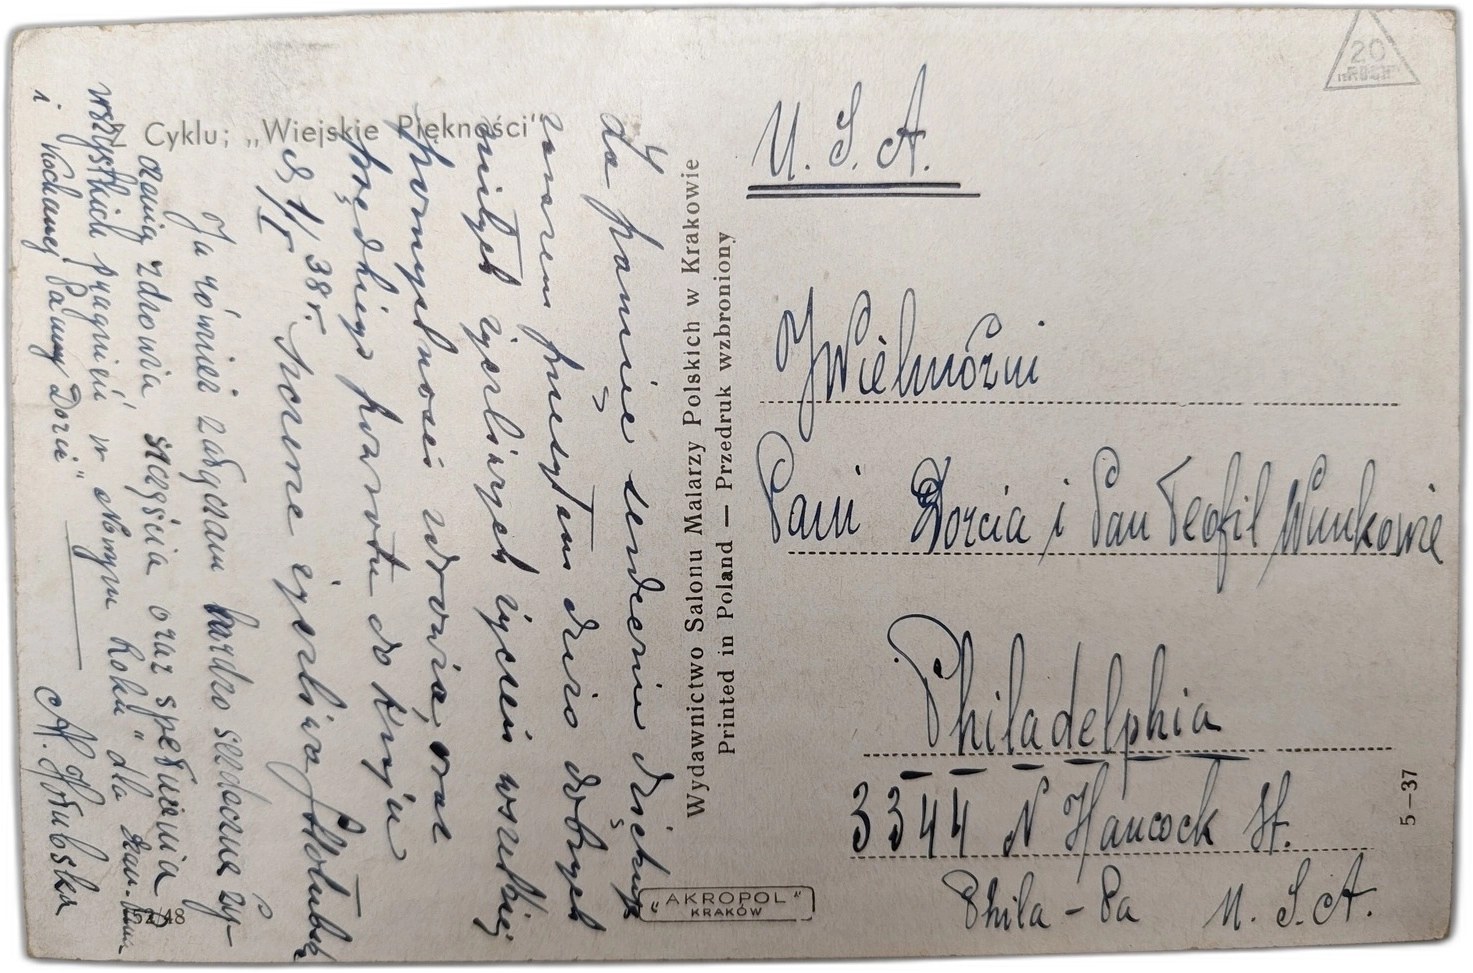 Z Cyklu; „Wiejskie Piękności"
Za pamięć serdecznie dziękuję
zarazem przesyłam dużo dobrych
miłych życzliwych życzeń wszelkiej
pomyślności zdrowia, oraz
prędkiego powrotu do kraju
1/I 38 r. szczerze życzliwa Hołubska
Ja również załączam bardzo serdeczne ży-
czenia zdrowia szczęścia oraz spełnienia
wszystkich pragnień w „Nowym Roku" dla
i Kochanej Panny Dorci"
A. Hołubska
52/48
Wydawnictwo Salonu Malarzy Polskich w Krakowie
Printed in Poland — Przedruk wzbroniony
„AKROPOL"
KRAKÓW
20
GROSZY
U. S. A.
JWielmożni
Pani Dorcia i Pan Teofil Wnukowie
Philadelphia
3344 N Hancock St.
Phila - Pa U. S. A.
5-37